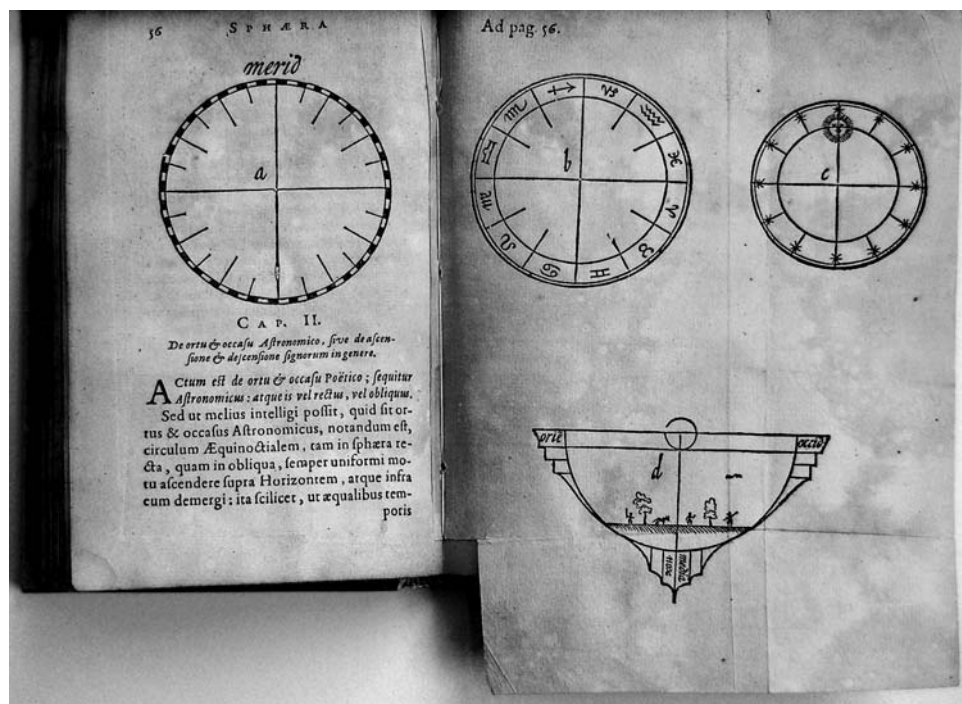 56 SPHÆRA
merid
a
CAP. II.
De ortu & occaſu Aſtronomico, ſive de aſcen-
ſione & deſcenſione ſignorum in genere.
ACtum eſt de ortu & occaſu Poëtico; ſequitur
Aſtronomicus: atque is vel rectus, vel obliquus.
Sed ut melius intelligi poſſit, quid ſit or-
tus & occaſus Aſtronomicus, notandum eſt,
circulum Æquinoctialem, tam in ſphæra re-
cta, quam in obliqua, ſemper uniformi mo-
tu aſcendere ſupra Horizontem, atque infra
eum demergi: ita ſcilicet, ut æqualibus tem-
poris
Ad pag. 56.
♐ ♑
♏ ♒
♎ b ♓
♍ ♈
♌ ♉
♋ ♊
c
orie occid
d
media
nox